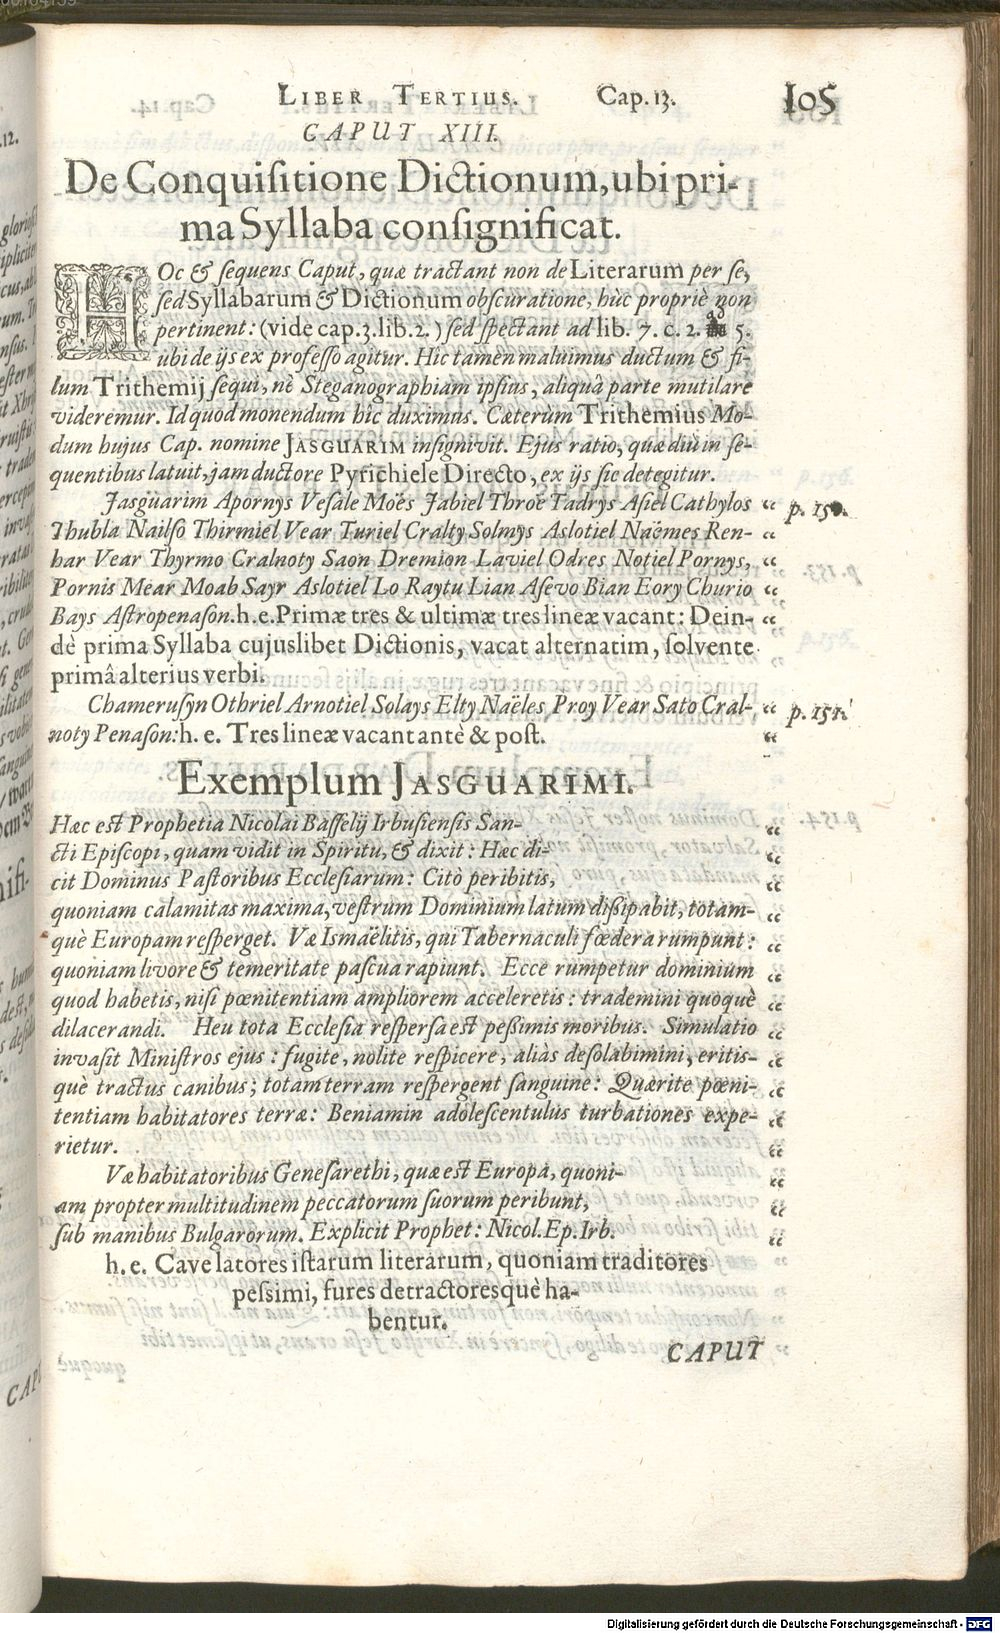 LIBER TERTIUS. Cap. 13. 105
CAPUT XIII.
De Conquiſitione Dictionum, ubi pri-
ma Syllaba conſignificat.
HOc & ſequens Caput, quæ tractant non de Literarum per ſe,
ſed Syllabarum & Dictionum obſcuratione, hùc propriè non
pertinent: (vide cap. 3. lib. 2.) ſed ſpectant ad lib. 7. c. 2. ad 5.
ubi de ijs ex profeſſo agitur. Hîc tamen maluimus ductum & fi-
lum Trithemij ſequi, nè Steganographiam ipſius, aliquâ parte mutilare
videremur. Id quod monendum hîc duximus. Cæterùm Trithemius Mo-
dum hujus Cap. nomine JASGUARIM inſignivit. Ejus ratio, quæ diù in ſe-
quentibus latuit, jam ductore Pyrichiele Directo, ex ijs ſic detegitur.
Jasgüarim Apornys Veſale Moës Jabiel Throë Tadrys Aſiel Cathylos “ p. 150.
Thubla Nailſo Thirmiel Vear Turiel Cralty Solmys Aslotiel Naëmes Ren- “
har Vear Thyrmo Cralnoty Saon Dremion Laviel Odres Notiel Pornys, “
Pornis Mear Moab Sayr Aslotiel Lo Raytu Lian Aſevo Bian Eory Churio “
Bays Aſtropenaſon. h. e. Primæ tres & ultimæ tres lineæ vacant: Dein- “
dè prima Syllaba cujuslibet Dictionis, vacat alternatim, ſolvente
primâ alterius verbi.
Chameruſyn Othriel Arnotiel Solays Elty Naëles Proy Vear Sato Cral- “ p. 151.
noty Penaſon: h. e. Tres lineæ vacant antè & poſt. “
Exemplum JASGUARIMI.
Hæc eſt Prophetia Nicolai Baſſelij Irbuſienſis San- “
cti Epiſcopi, quam vidit in Spiritu, & dixit: Hæc di- “
cit Dominus Paſtoribus Eccleſiarum: Citò peribitis, “
quoniam calamitas maxima, veſtrum Dominium latum diſſipabit, totam- “
què Europam reſperget. Væ Ismaëlitis, qui Tabernaculi fœdera rumpunt: “
quoniam livore & temeritate paſcua rapiunt. Ecce rumpetur dominium “
quod habetis, niſi pœnitentiam ampliorem acceleretis: trademini quoquè “
dilacerandi. Heu tota Eccleſia reſperſa eſt peſſimis moribus. Simulatio “
invaſit Miniſtros ejus: fugite, nolite reſpicere, aliàs deſolabimini, eritis- “
què tractus canibus; totam terram reſpergent ſanguine: Quærite pœni- “
tentiam habitatores terræ: Beniamin adoleſcentulus turbationes expe- “
rietur. “
Væ habitatoribus Geneſarethi, quæ eſt Europa, quoni- “
am propter multitudinem peccatorum ſuorum peribunt, “
ſub manibus Bulgarorum. Explicit Prophet: Nicol. Ep. Irb. “
h. e. Cave latores iſtarum literarum, quoniam traditores
peſſimi, fures detractoresquè ha-
bentur.
CAPUT
Digitalisierung gefördert durch die Deutsche Forschungsgemeinschaft - DFG